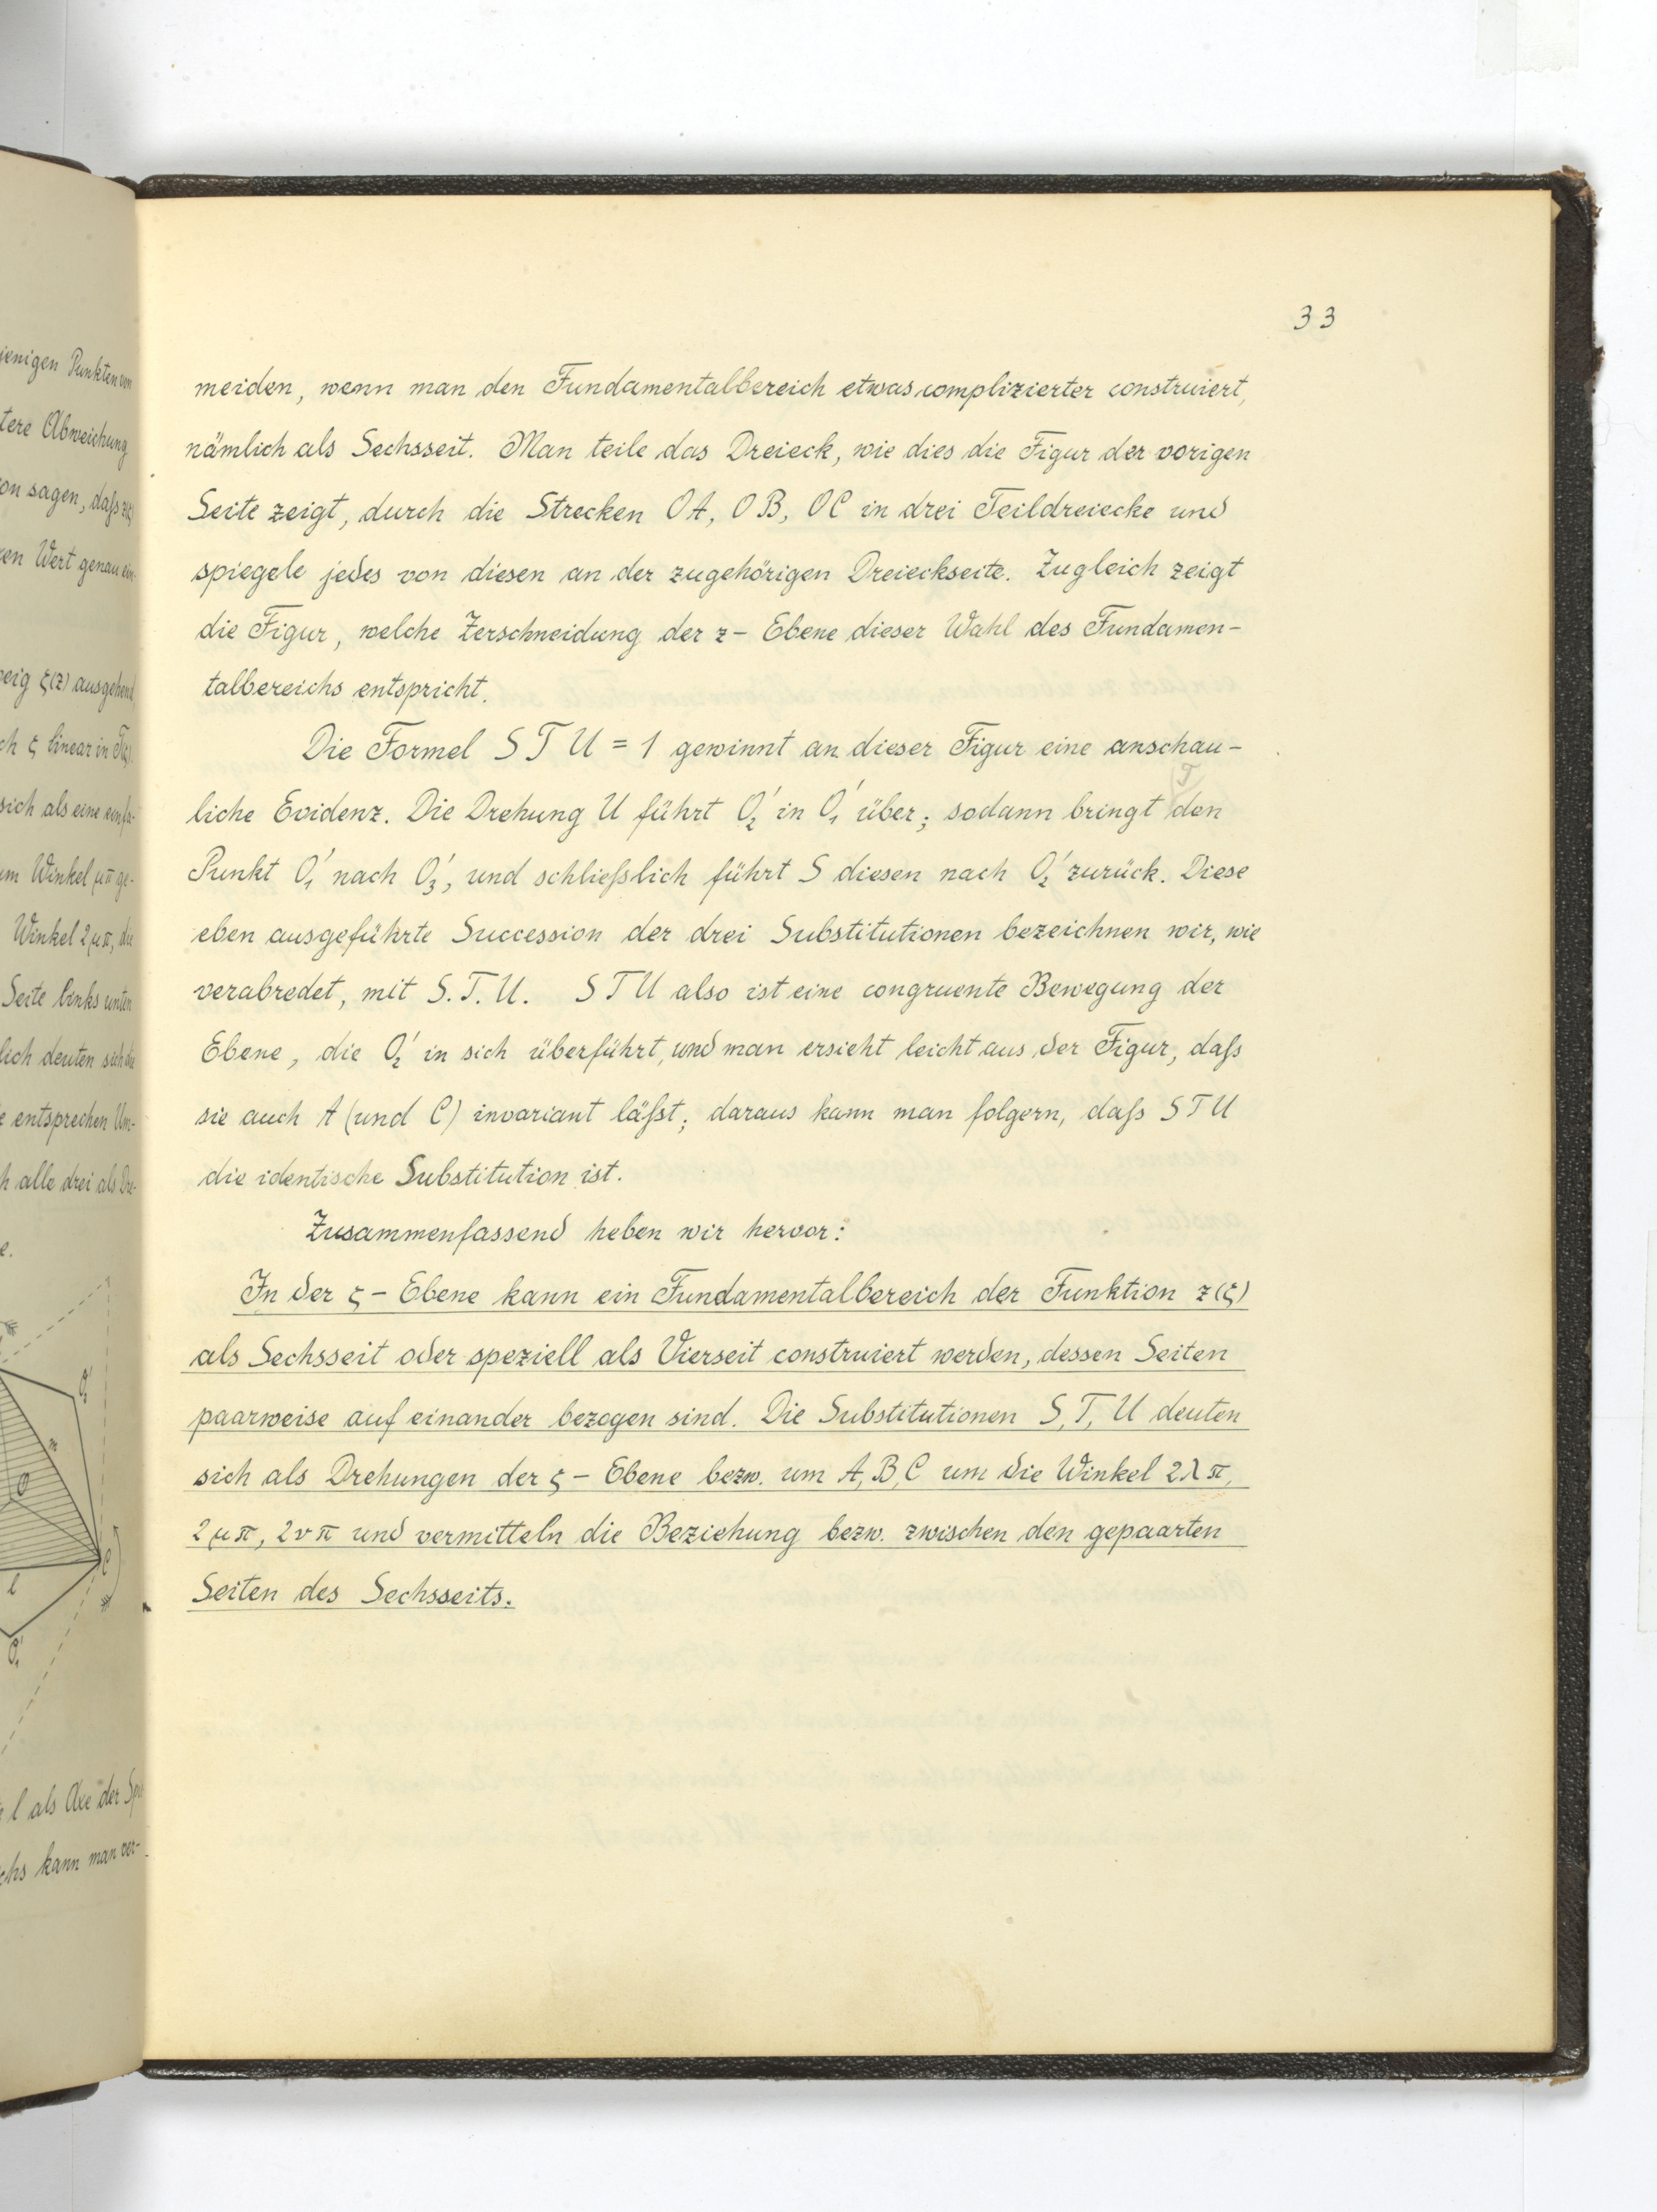 jenigen Punkten von
tere Abweichung
on sagen, daſs z(ζ)
en Wert genau ein-
eig ζ(z) ausgehend
ch ζ linear in
sich als eine einfa-
um Winkel μπ ge-
Winkel 2μπ, die
Seite links unten
lich deuten sich die
e entsprechen Um-
h alle drei als Dre-
e.
O
m
C
l
l als Axe der Spie
chs kann man ver-
33
meiden, wenn man den Fundamentalbereich etwas complizierter construiert,
nämlich als Sechsseit. Man teile das Dreieck, wie dies die Figur der vorigen
Seite zeigt, durch die Strecken OA, OB, OC in drei Teildreiecke und
spiegele jedes von diesen an der zugehörigen Dreieckseite. Zugleich zeigt
die Figur, welche Zerschneidung der z- Ebene dieser Wahl des Fundamen-
talbereichs entspricht.
Die Formel S T U = 1 gewinnt an dieser Figur eine anschau-
T
liche Evidenz. Die Drehung U führt O₂' in O₁' über; sodann bringt den
Punkt O₁' nach O₃', und schlieſslich führt S diesen nach O₂' zurück. Diese
eben ausgeführte Succession der drei Substitutionen bezeichnen wir, wie
verabredet, mit S. T. U. S T U also ist eine congruente Bewegung der
Ebene, die O₂' in sich überführt, und man ersieht leicht aus der Figur, daſs
sie auch A (und C) invariant läſst; daraus kann man folgern, daſs S T U
die identische Substitution ist.
Zusammenfassend heben wir hervor:
In der ζ- Ebene kann ein Fundamentalbereich der Funktion z(ζ)
als Sechsseit oder speziell als Vierseit construiert werden, dessen Seiten
paarweise auf einander bezogen sind. Die Substitutionen S, T, U deuten
sich als Drehungen der ζ- Ebene bezw. um A, B, C um die Winkel 2λπ,
2μπ, 2νπ und vermitteln die Beziehung bezw. zwischen den gepaarten
Seiten des Sechsseits.